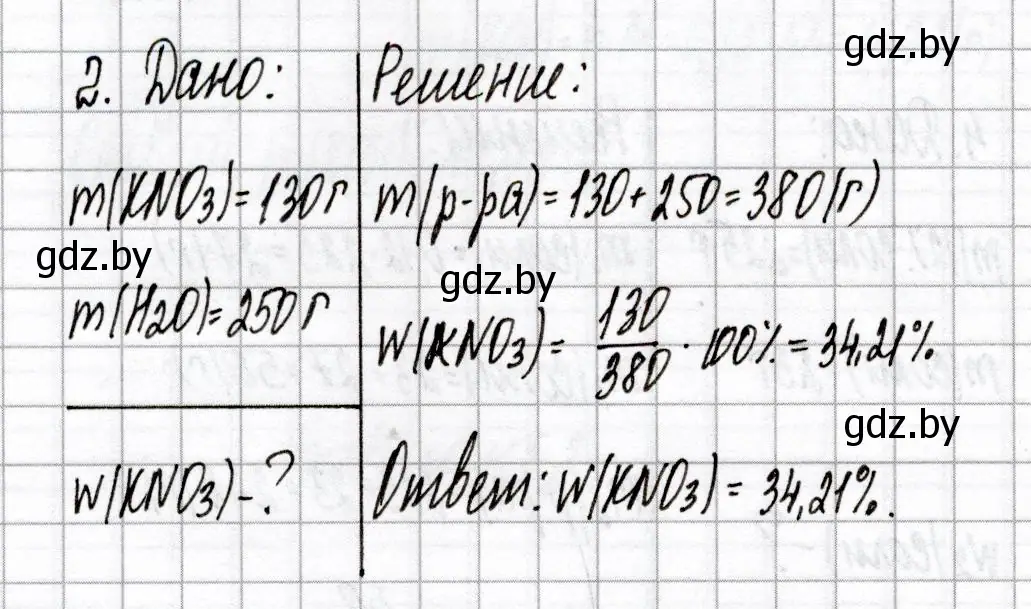 gdz.by
2. Дано:
m(KNO3)=130г
gdz.by
m(H2O)=250г
w(KNO3)-?
Решение:
m(р-ра)=130+250=380(г)
gdz.by
w(KNO3)= 130/380 · 100%=34,21%
gdz.by
Ответ: w(KNO3)=34,21%.